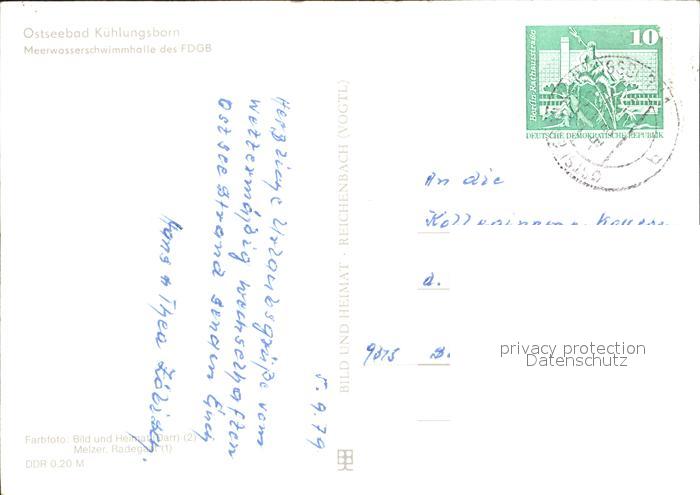 Ostseebad Kühlungsborn
Meerwasserschwimmhalle des FDGB
10
Berlin-Rathausstraße
DEUTSCHE DEMOKRATISCHE REPUBLIK
An die
d.
privacy protection
Datenschutz
5.9.79
Herzliche Urlaubsgrüße vom
wettermäßig wechselhaften
Ostseestrand senden Euch
Hans + Thea
BILD UND HEIMAT · REICHENBACH (VOGTL)
Farbfoto: Bild und Heimat (Darr) (2)
Melzer, Radegast (1)
DDR 0,20 M